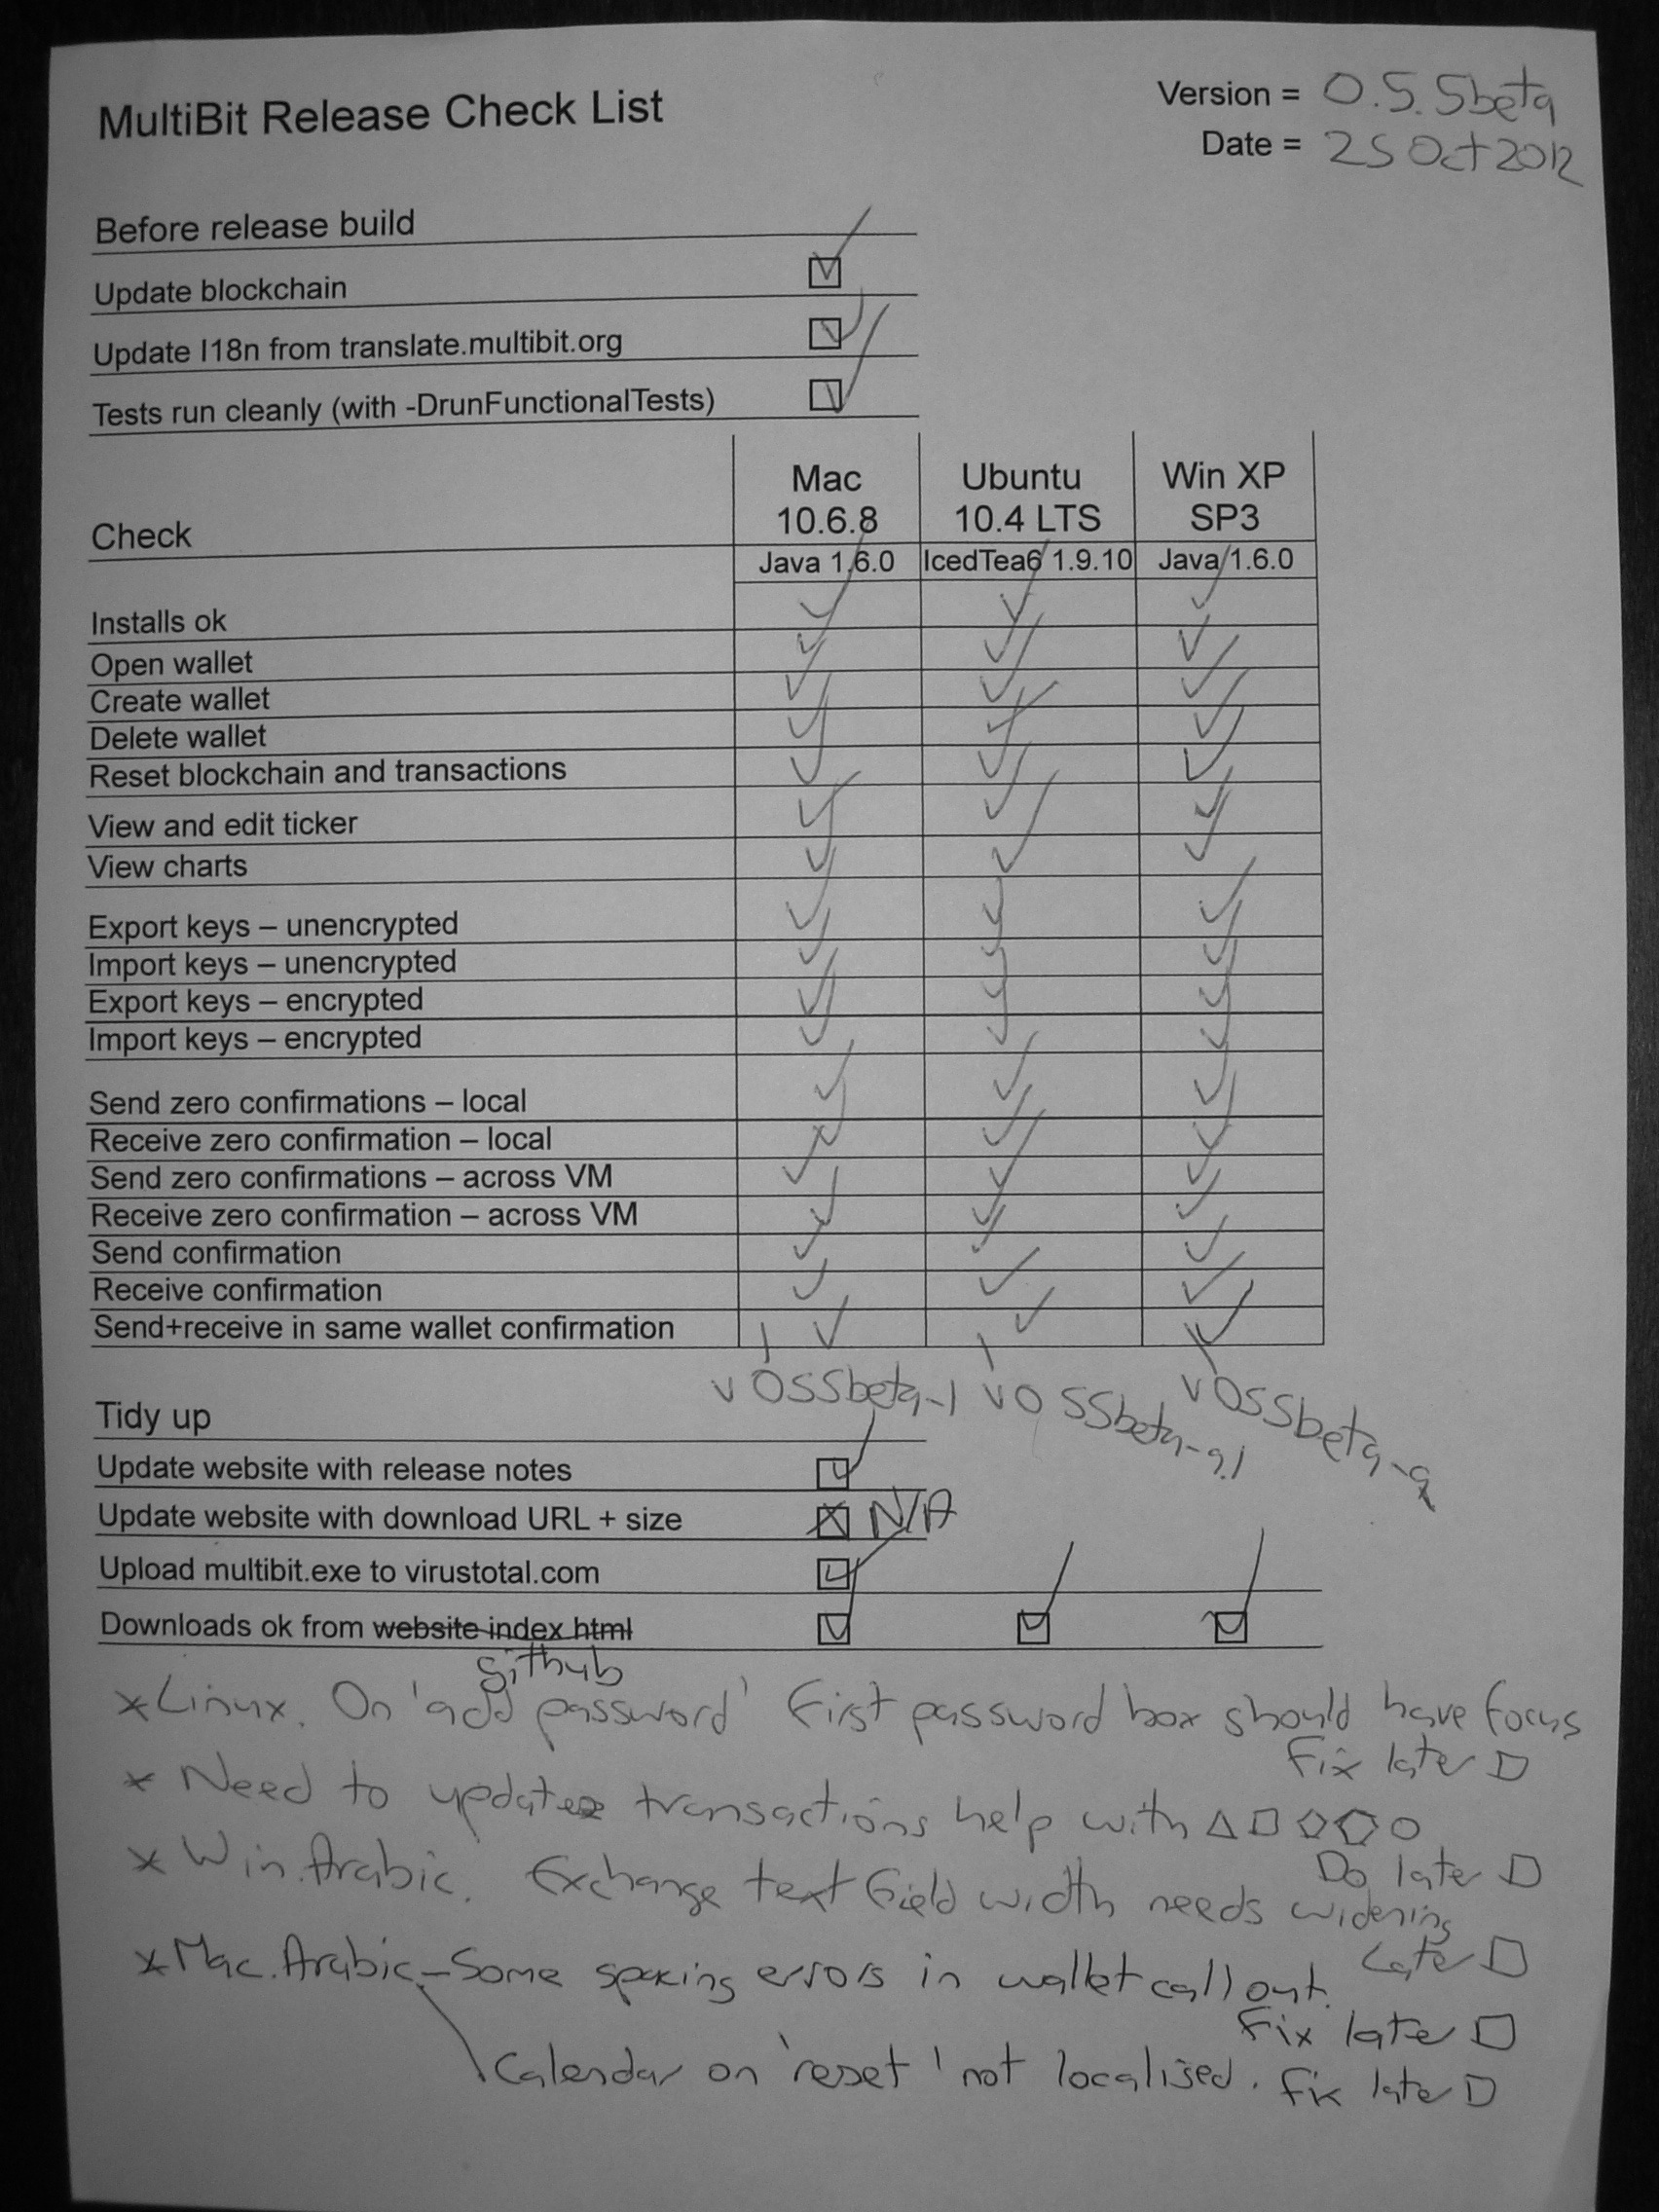 MultiBit Release Check List
Version = 0.5.5beta
Date = 25 Oct 2012
Before release build
Update blockchain
Update I18n from translate.multibit.org
Tests run cleanly (with -DrunFunctionalTests)
Check
Mac 10.6.8
Ubuntu 10.4 LTS
Win XP SP3
Java 1.6.0
IcedTea6 1.9.10
Java 1.6.0
Installs ok
Open wallet
Create wallet
Delete wallet
Reset blockchain and transactions
View and edit ticker
View charts
Export keys – unencrypted
Import keys – unencrypted
Export keys – encrypted
Import keys – encrypted
Send zero confirmations – local
Receive zero confirmation – local
Send zero confirmations – across VM
Receive zero confirmation – across VM
Send confirmation
Receive confirmation
Send+receive in same wallet confirmation
v 055beta-1
v 0 55beta-9.1
v 055beta-9
Tidy up
Update website with release notes
Update website with download URL + size N/A
Upload multibit.exe to virustotal.com
Downloads ok from website index html
github
* Linux. On 'add password' First password box should have focus
Fix later
* Need to update transactions help with △ □ ⬠ ⬡ ○
Do later
* Win.Arabic. Exchange text field width needs widening
Later
* Mac.Arabic – Some spacing errors in wallet callout.
Fix later
Calendar on 'reset' not localised. Fix later